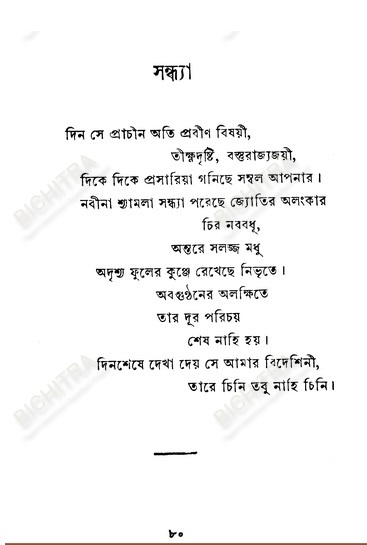 সন্ধ্যা
দিন সে প্রাচীন অতি প্রবীণ বিষয়ী,
তীক্ষ্ণদৃষ্টি, বস্তুরাজ্যজয়ী,
দিকে দিকে প্রসারিয়া গনিছে সম্বল আপনার।
নবীনা শ্যামলা সন্ধ্যা পরেছে জ্যোতির অলংকার
চির নববধূ,
অন্তরে সলজ্জ মধু
অদৃশ্য ফুলের কুঞ্জে রেখেছে নিভৃতে।
অবগুণ্ঠনের অলক্ষিতে
তার দূর পরিচয়
শেষ নাহি হয়।
দিনশেষে দেখা দেয় সে আমার বিদেশিনী,
তারে চিনি তবু নাহি চিনি।
BICHITRA
BICHITRA
BICHITRA
BICHITRA
৮০